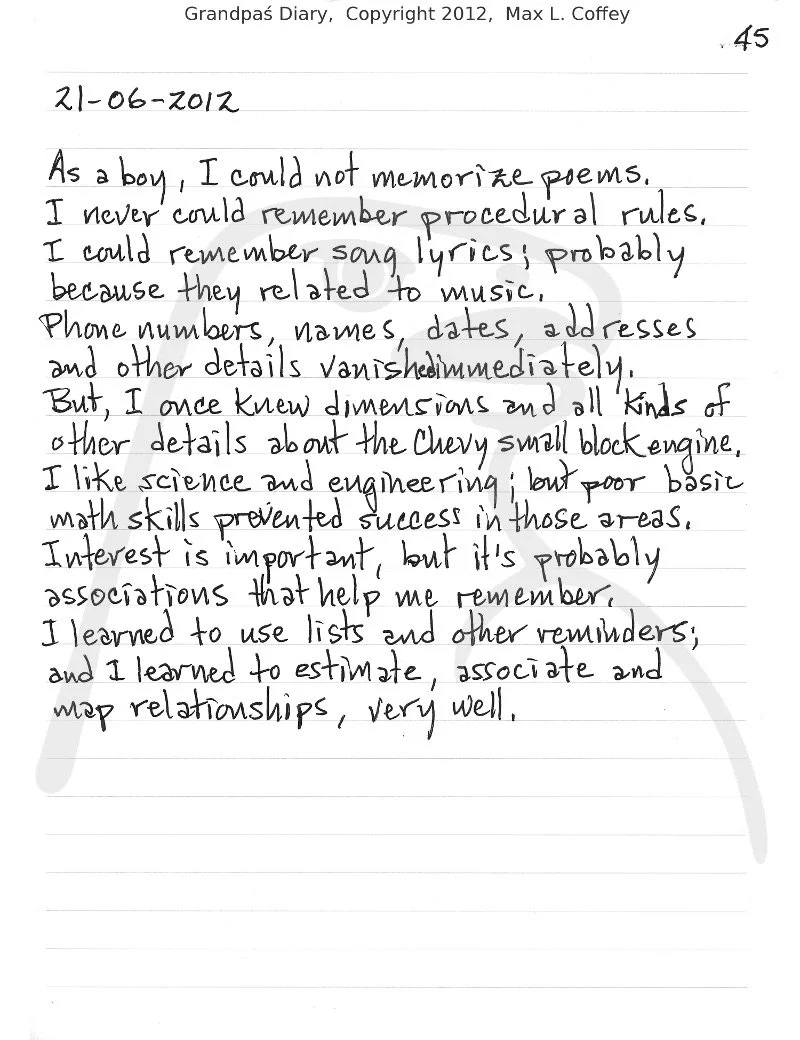 Grandpaś Diary, Copyright 2012, Max L. Coffey
45
21-06-2012
As a boy, I could not memorize poems.
I never could remember procedural rules.
I could remember song lyrics; probably
because they related to music.
Phone numbers, names, dates, addresses
and other details vanished immediately.
But, I once knew dimensions and all kinds of
other details about the Chevy small block engine.
I like science and engineering; but poor basic
math skills prevented success in those areas.
Interest is important, but it's probably
associations that help me remember.
I learned to use lists and other reminders;
and I learned to estimate, associate and
map relationships, very well.